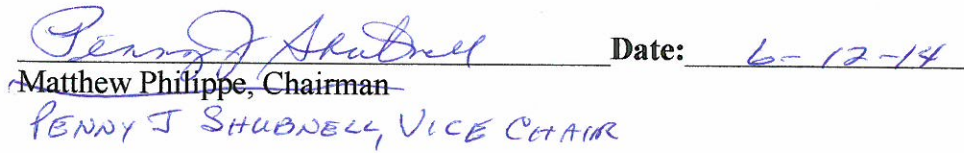 Penny J Shubnell Date: 6-12-14
Matthew Philippe, Chairman
PENNY J SHUBNELL, VICE CHAIR